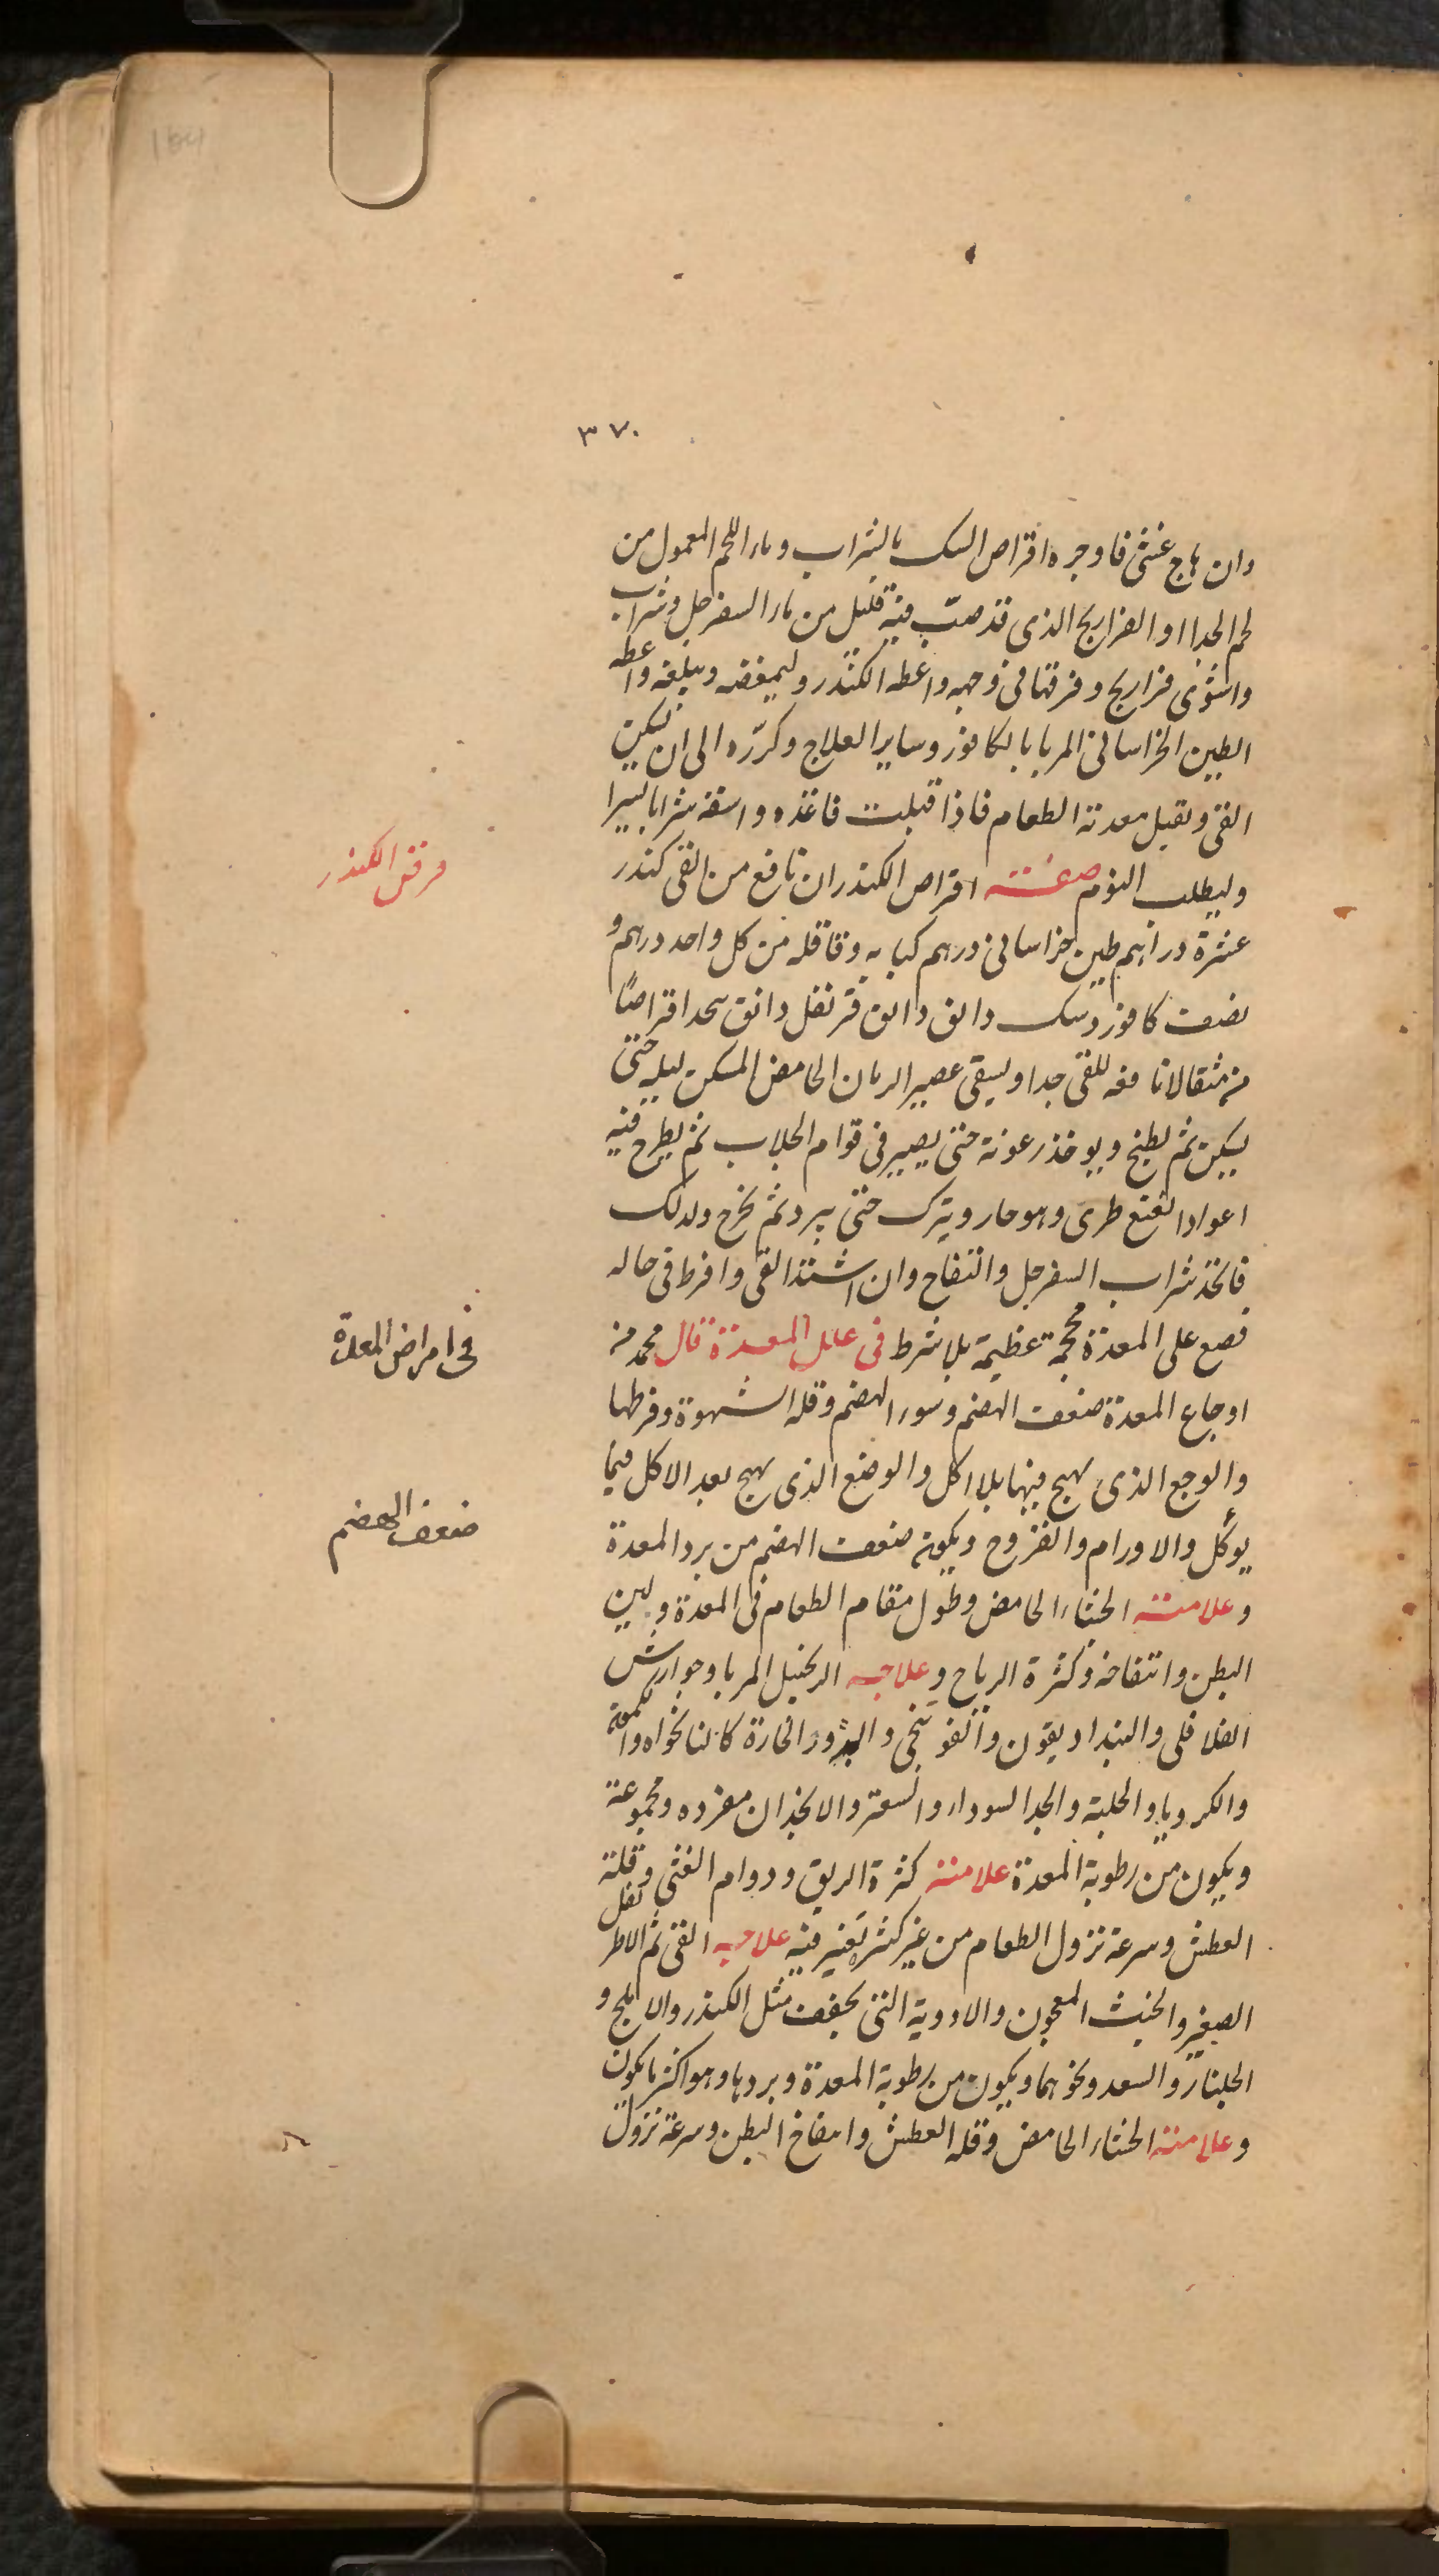 ٣٧٠
وان هاج غشى فاوجره اقراص السك بالشراب وماء اللحم المعمول من
لحم الجدا او الفراريج الذى قد صب فيه قليل من ماء السفرجل وشراب
واشوى فراريج وفرقها فى وجهه واعطه الكندر وليمضغه ويبلغه واعطه
الطين الخراسانى المربا بالكافور وساير العلاج وكرره الى ان يسكن
القى وتقبل معدته الطعام فاذا قبلت فاغذه واسقه شرابا يسيرا
وليطلب النوم صفته اقراص الكندران نافع من القى كندر
عشرة دراهم طين خراسانى درهم كبابه وقاقله من كل واحد درهم و
نصف كافور وسك دانق دانق قرنفل دانق يتخذ اقراصا
من مثقال نافعه للقى جدا ويسقى عصير الرمان الحامض المسكن ليله حتى
يسكن ثم يطبخ ويوخذ رغوته حتى يصير فى قوام الجلاب ثم يطرح فيه
اعواد النعنع طرى وهو حار ويترك حتى يبرد ثم يخرج وكذلك
فاتخذ شراب السفرجل والتفاح وان اشتد القى وافرط فى حاله
فضع على المعدة محجمة عظيمة بلا شرط فى علل المعدة قال محمد من
اوجاع المعدة ضعف الهضم وسوء الهضم وقله الشهوة وفرطها
والوجع الذى يهيج فيها بلا اكل والوضع الذى يهيج بعد الاكل فيما
يوكل والاورام والقروح ويكون ضعف الهضم من برد المعدة
وعلامته الجشاء الحامض وطول مقام الطعام فى المعدة ولين
البطن وانتفاخه وكثرة الرياح وعلاجه الزنجبيل المربا وجوارش
الفلافلى والبنداديقون والفوتنجى والبذور الحارة كالنانخواه والكمون
والكرويا والحلبة والحبة السوداء والسعتر والانجذان مفرده ومجموعة
ويكون من رطوبة المعدة علامته كثرة الريق ودوام الغثى وقلة
العطش وسرعة نزول الطعام من غير كثير تغير فيه علاجه القى ثم الاطريفل
الصغير والخبث المعجون والادوية التى تجفف مثل الكندر والاملج و
الجلنار والسعد ونحوهما ويكون من رطوبة المعدة وبردها وهو اكثر ما يكون
وعلامته الجشاء الحامض وقله العطش وانتفاخ البطن وسرعة نزول
قرص الكندر
فى امراض المعدة
ضعف الهضم